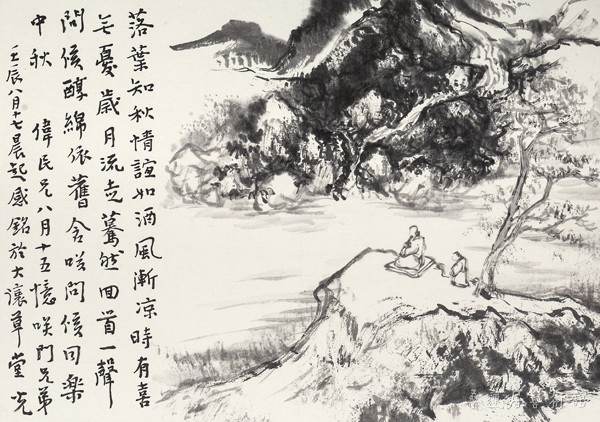 落葉知秋情誼如酒風漸凉時有喜
无憂歲月流走驀然回首一聲
問候醇綿依舊含咲問候同樂
中秋 偉民兄八月十五憶咲門兄弟
壬辰八月十七晨起感銘於大瀼草堂 光